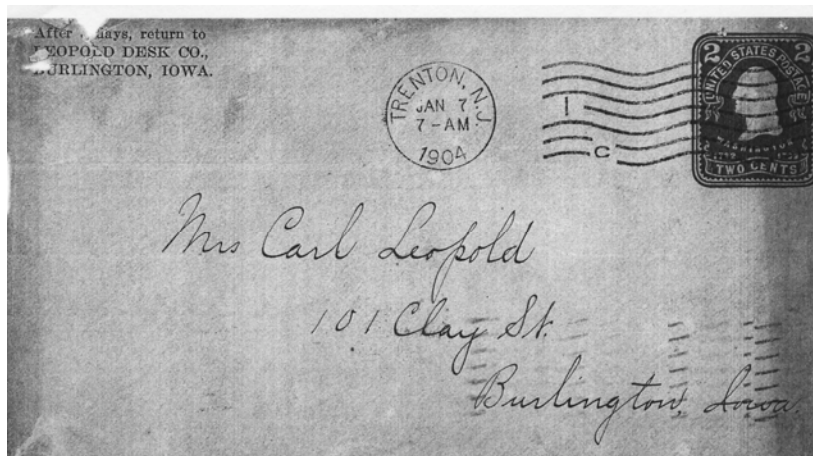 After days, return to
LEOPOLD DESK CO.,
BURLINGTON, IOWA.
TRENTON, N.J.
JAN 7
7-AM
1904
1
C
2 2
UNITED STATES POSTAGE
WASHINGTON
TWO CENTS
Mrs Carl Leopold
101 Clay St.
Burlington, Iowa.